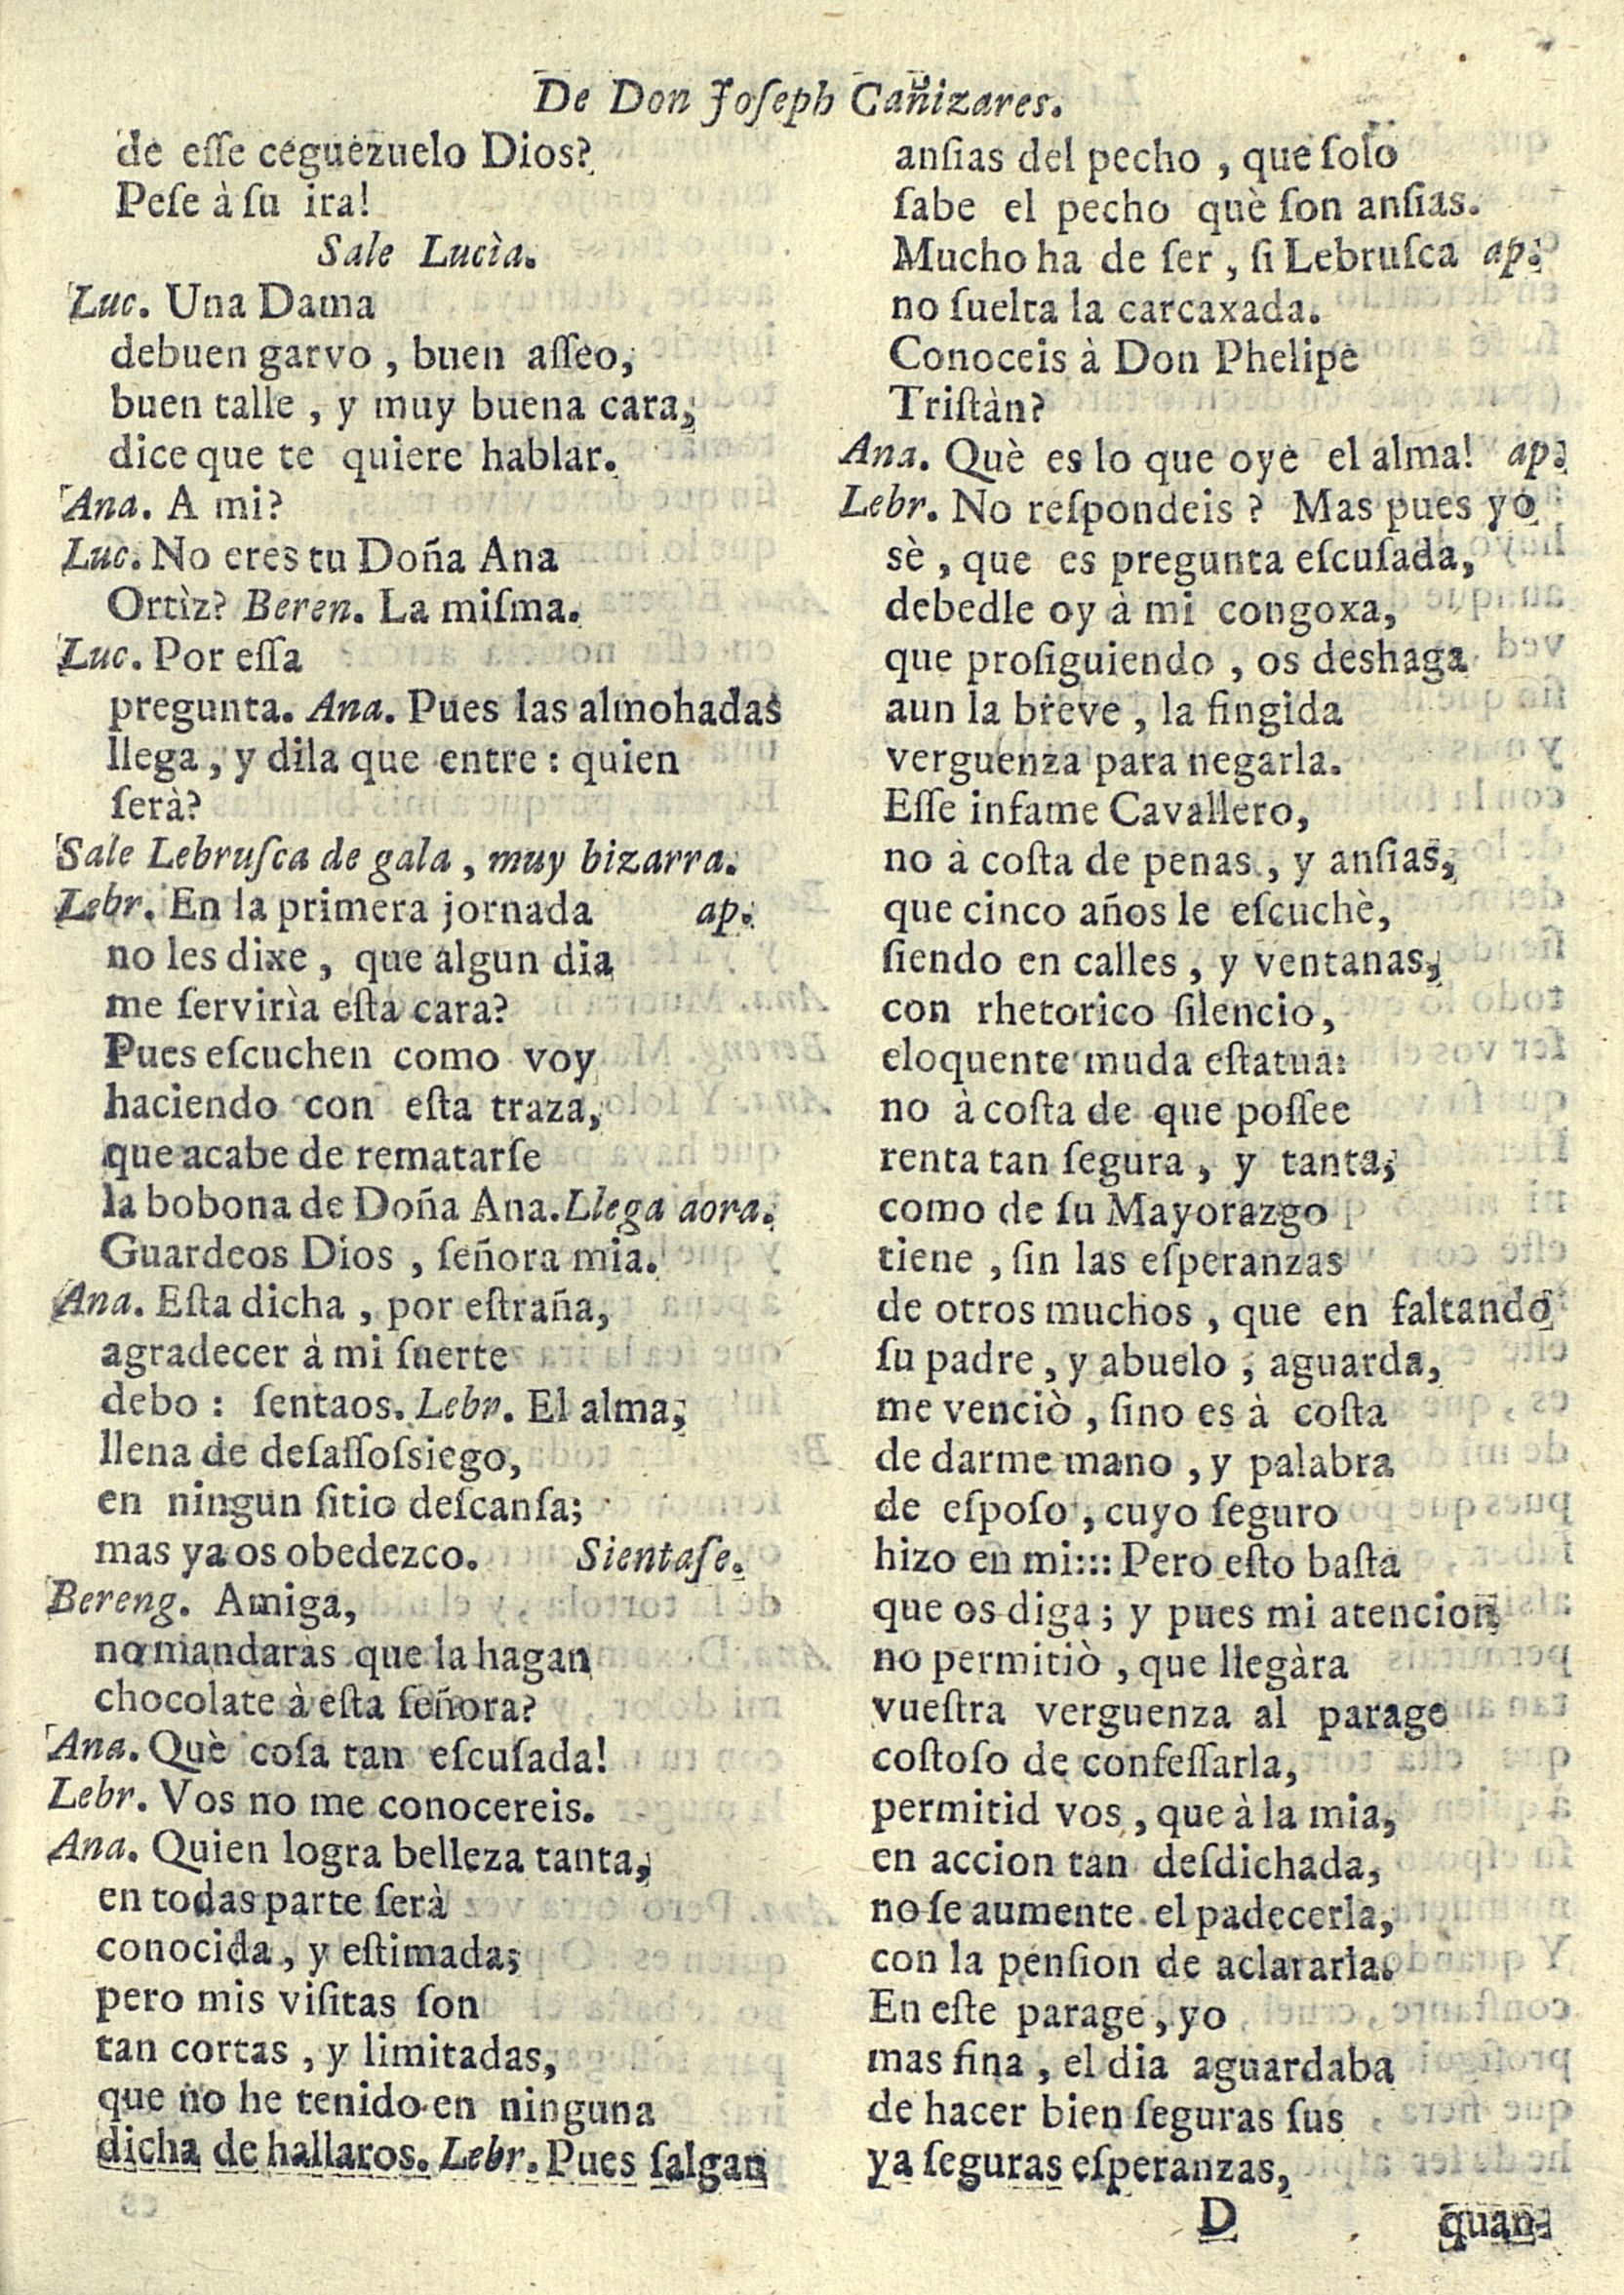 De Don Joſeph Cañizares.
de eſſe ceguezuelo Dios?
Peſe à ſu ira!
Sale Lucìa.
Luc. Una Dama
debuen garvo, buen aſſeo,
buen talle, y muy buena cara,
dice que te quiere hablar.
Ana. A mi?
Luc. No eres tu Doña Ana
Ortìz? Beren. La miſma.
Luc. Por eſſa
pregunta. Ana. Pues las almohadas
llega, y dila que entre: quien
ſerà?
Sale Lebruſca de gala, muy bizarra.
Lebr. En la primera jornada ap.
no les dixe, que algun dia
me ſervirìa eſta cara?
Pues eſcuchen como voy
haciendo con eſta traza,
que acabe de rematarſe
la bobona de Doña Ana. Llega aora.
Guardeos Dios, ſeñora mia.
Ana. Eſta dicha, por eſtraña,
agradecer à mi ſuerte
debo: ſentaos. Lebr. El alma,
llena de deſaſſoſsiego,
en ningun ſitio deſcanſa;
mas ya os obedezco. Sientaſe.
Bereng. Amiga,
no mandaràs que la hagan
chocolate à eſta ſeñora?
Ana. Què coſa tan eſcuſada!
Lebr. Vos no me conocereis.
Ana. Quien logra belleza tanta,
en todas parte ſerà
conocida, y eſtimada;
pero mis viſitas ſon
tan cortas, y limitadas,
que no he tenido en ninguna
dicha de hallaros. Lebr. Pues ſalgan
anſias del pecho, que ſolo
ſabe el pecho què ſon anſias.
Mucho ha de ſer, ſi Lebruſca ap.
no ſuelta la carcaxada.
Conoceis à Don Phelipe
Triſtàn?
Ana. Què es lo que oye el alma! ap.
Lebr. No reſpondeis? Mas pues yo
sè, que es pregunta eſcuſada,
debedle oy à mi congoxa,
que proſiguiendo, os deshaga
aun la breve, la fingida
verguenza para negarla.
Eſſe infame Cavallero,
no à coſta de penas, y anſias,
que cinco años le eſcuchè,
ſiendo en calles, y ventanas,
con rhetorico ſilencio,
eloquente muda eſtatua:
no à coſta de que poſſee
renta tan ſegura, y tanta,
como de ſu Mayorazgo
tiene, ſin las eſperanzas
de otros muchos, que en faltando
ſu padre, y abuelo, aguarda,
me venciò, ſino es à coſta
de darme mano, y palabra
de eſpoſo, cuyo ſeguro
hizo en mi:::: Pero eſto baſta
que os diga; y pues mi atencion
no permitiò, que llegàra
vueſtra verguenza al parage
coſtoſo de confeſſarla,
permitid vos, que à la mia,
en accion tan deſdichada,
no ſe aumente el padecerla,
con la penſion de aclararla.
En eſte parage, yo
mas fina, el dia aguardaba
de hacer bien ſeguras ſus
ya ſeguras eſperanzas,
D quan-